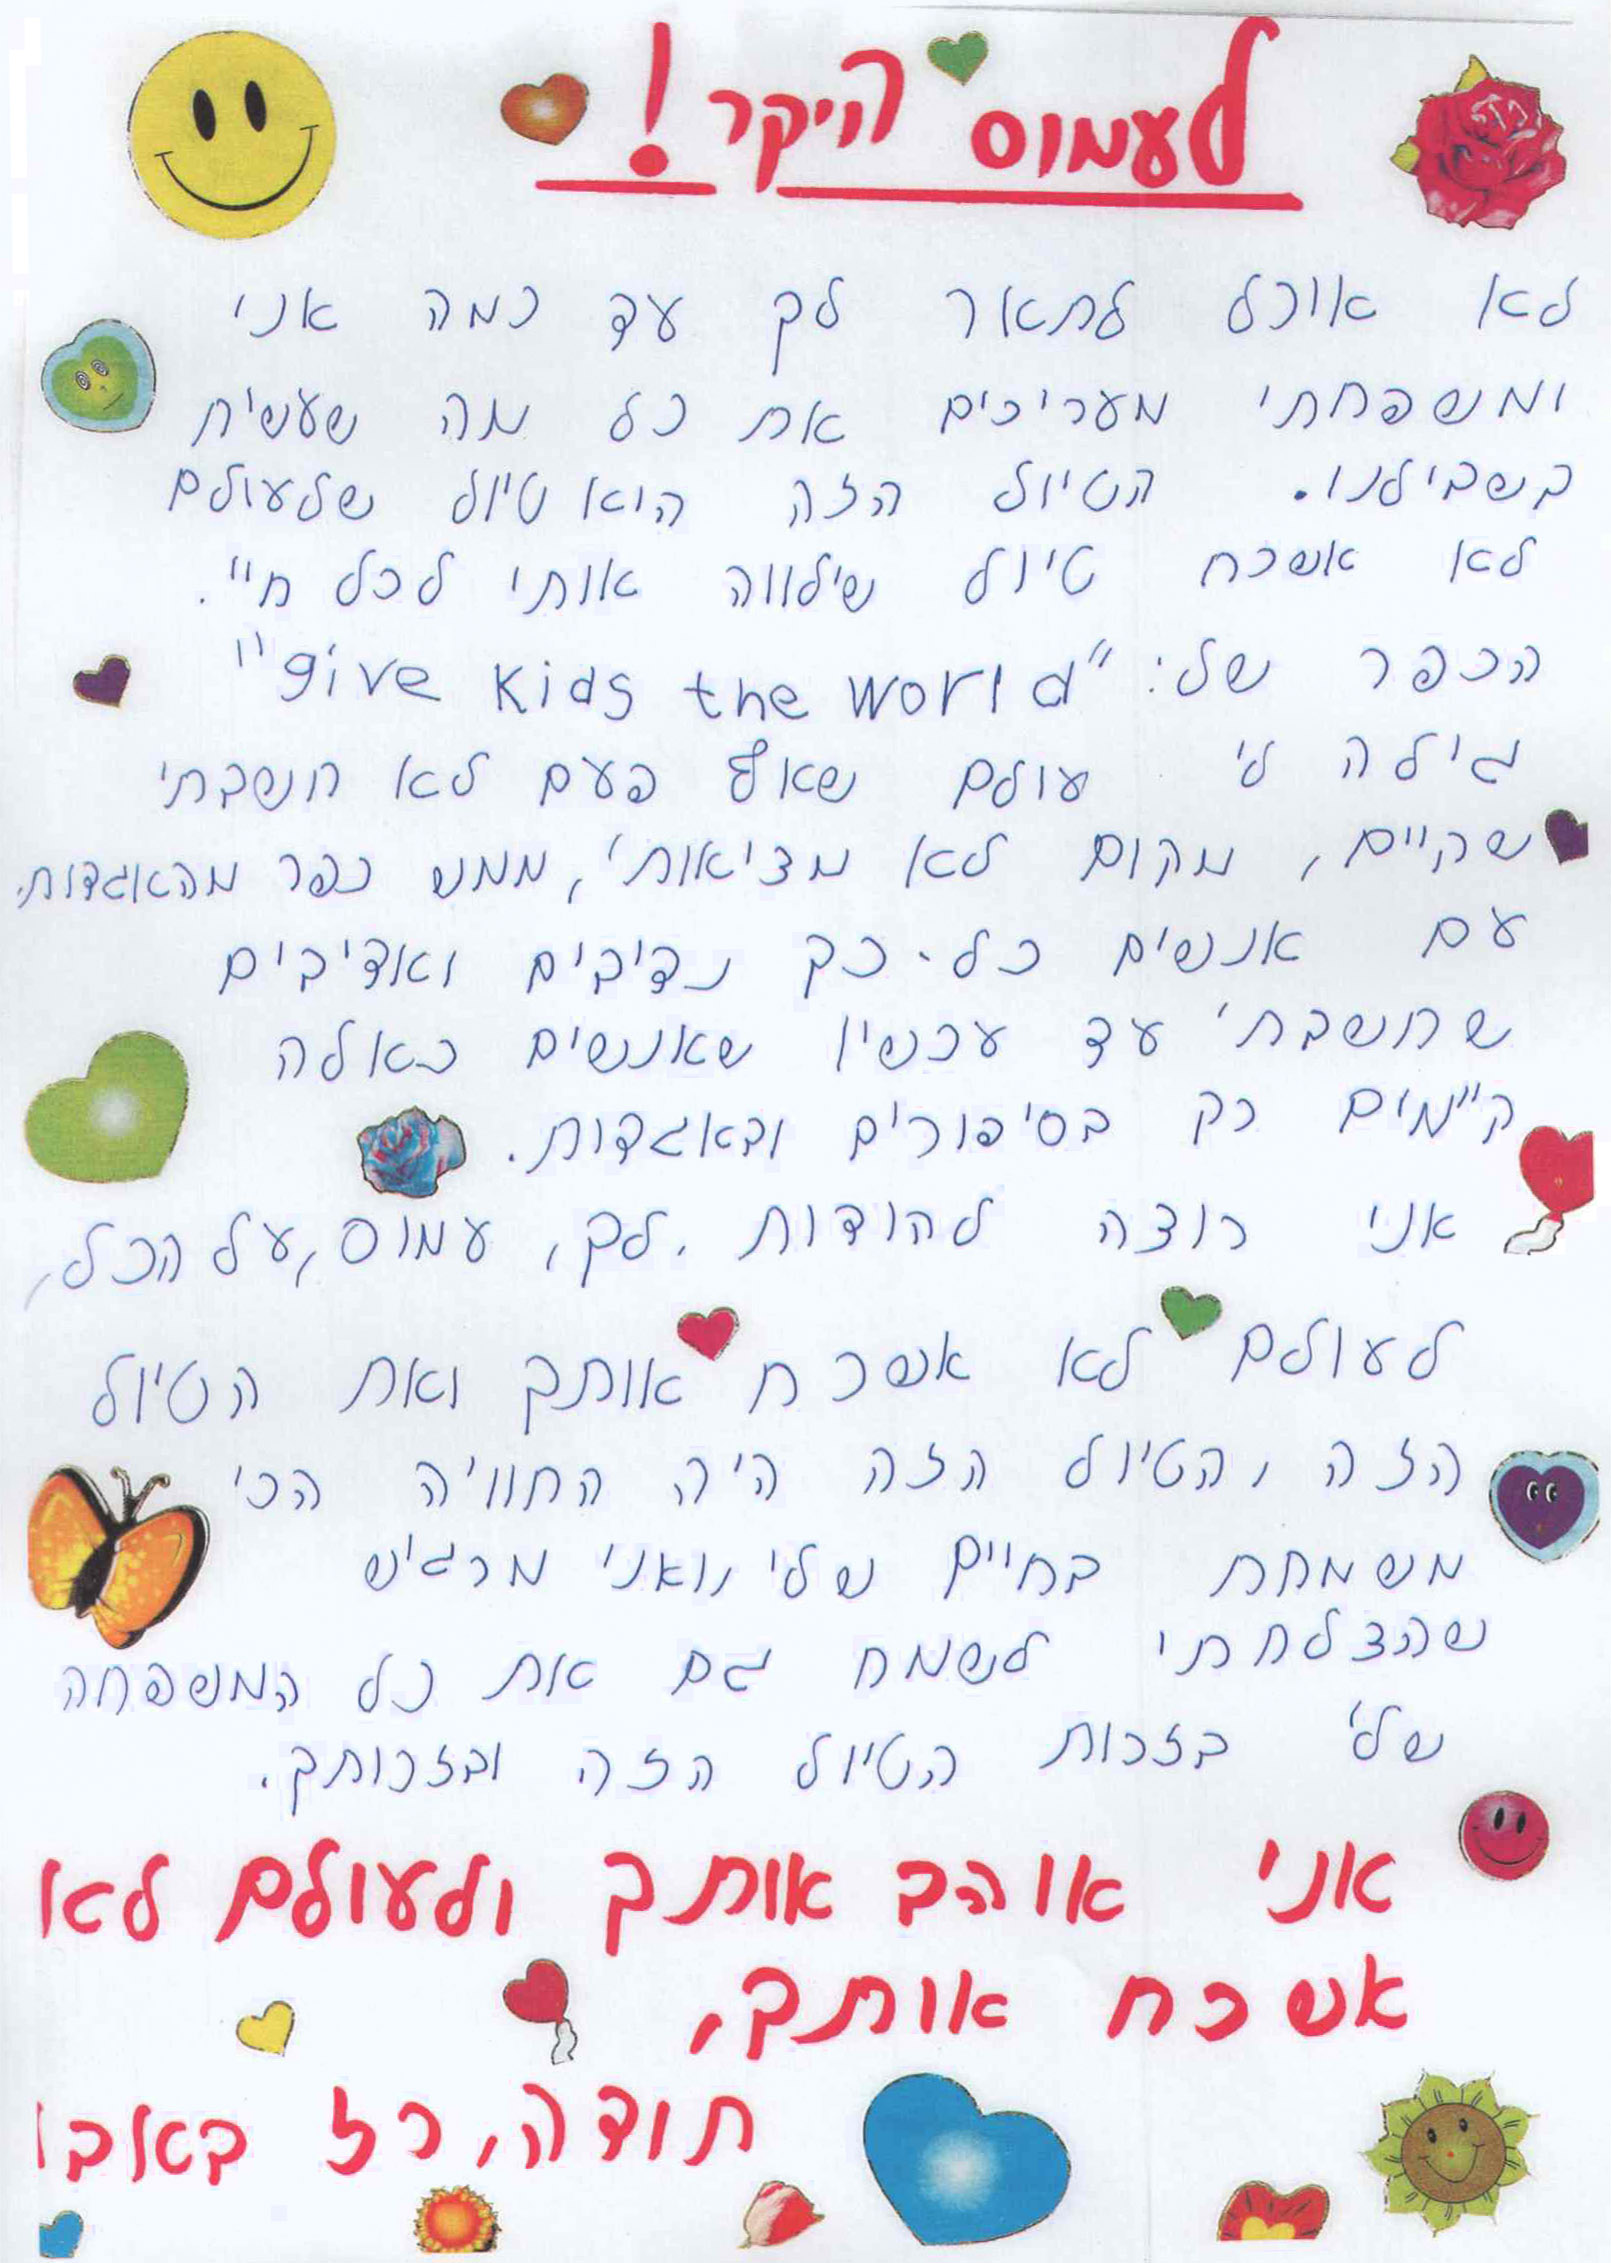 לעמוס היקר!
לא אוכל לתאר לך עד כמה אני
ומשפחתי מעריכים את כל מה שעשית
בשבילנו. הטיול הזה הוא טיול שלעולם
לא אשכח טיול שילווה אותי לכל חיי.
הכפר של: "give kids the world"
גילה לי עולם שאף פעם לא חשבתי
שקיים, מקום לא מציאותי, ממש כפר מהאגדות.
עם אנשים כל-כך נדיבים ואדיבים
שחשבתי עד עכשיו שאנשים כאלה
קיימים רק בסיפורים ובאגדות.
אני רוצה להודות לך, עמוס, על הכל,
לעולם לא אשכח אותך ואת הטיול
הזה, הטיול הזה היה החוויה הכי
משמחת בחיים שלי, ואני מרגיש
שהצלחתי לשמח גם את כל המשפחה
שלי בזכות הטיול הזה ובזכותך.
אני אוהב אותך ולעולם לא
אשכח אותך,
תודה, רז